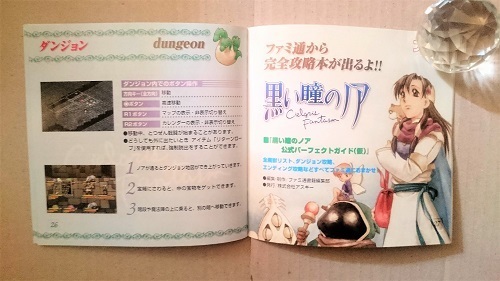 ダンジョン
dungeon
ダンジョン内でのボタン操作
方向キー(左方向) 移動
●ボタン 高速移動
●R1ボタン マップの表示・非表示切り替え
●R2ボタン カレンダーの表示・非表示切り替え
●移動中、とつぜん戦闘が始まることがあります。
●どうしても外に出たいとき アイテム「リターンロー
プ」を使用すれば、強制脱出をすることができます。
1 ノアが通るとダンジョン地図ができ上がっていきます。
2 宝箱にさわると、中の宝物をゲットできます。
3 階段や魔法陣の上に乗ると、別の階へ移動できます。
26
ファミ通から
完全攻略本が出るよ!!
黒い瞳のノア
Celeste Fantasm
『黒い瞳のノア
公式パーフェクトガイド(仮)』
全種族リスト、ダンジョン攻略、
エンディング攻略などすべてファミ通におまかせ!
●編集・制作 ファミ通書籍編集部
●発行 株式会社アスキー